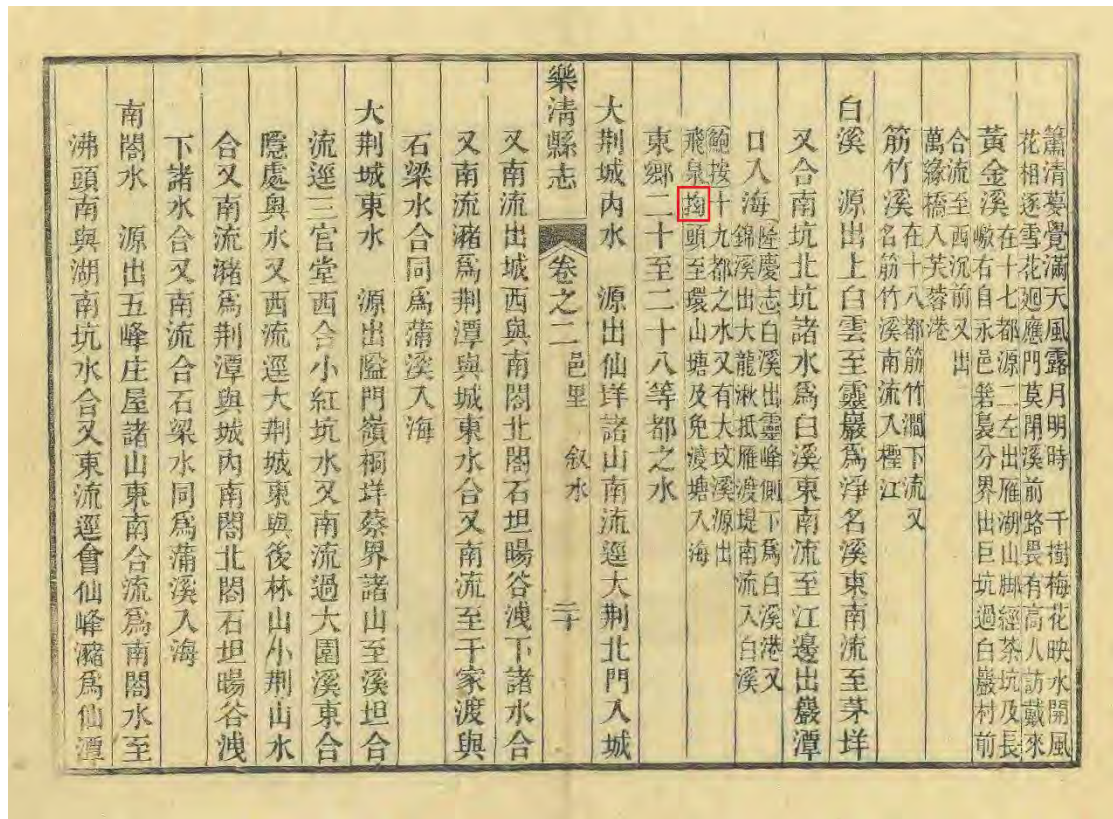 蕭清夢覺滿天風露月明時　千樹梅花映水開風
花相逐雪花廻應門莫閉溪前路畏有高人訪戴來
黃金溪
在十七都源二左出雁湖山脚經茶坑及長
嶩右自永邑箬裊分界出巨坑過白巖村前
合流至西沉前又出
萬緣橋入芙蓉港
筋竹溪
在十八都筋竹澗下流又
名筋竹溪南流入檉江
白溪　源出上白雲至靈巖爲淨名溪東南流至茅垟
又合南坑北坑諸水爲白溪東南流至江邊出巖潭
口入海
隆慶志白溪出靈峰側下爲白溪港又
錦溪出大龍湫抵雁渡堤南流入白溪
鮑按十九都之水又有大坟溪源出
飛泉𢰅頭至環山塘及免渡塘入海
東鄉二十至二十八等都之水
大荆城內水　源出仙垟諸山南流逕大荆北門入城
樂清縣志　卷之二　邑里　叙水　二十
又南流出城西與南閤北閤石坦暘谷溪下諸水合
又南流瀦爲荆潭與城東水合又南流至于家渡與
石梁水合同爲蒲溪入海
大荆城東水　源出隘門嶺桐垟蔡界諸山至溪坦合
流逕三官堂西合小紅坑水又南流過大園溪東合
隱處奧水又西流逕大荆城東與後林山小荆山水
合又南流瀦爲荆潭與城內南閤北閤石坦暘谷溪
下諸水合又南流合石梁水同爲蒲溪入海
南閤水　源出五峰庄屋諸山東南合流爲南閤水至
沸頭南與湖南坑水合又東流逕會仙峰瀦爲仙潭